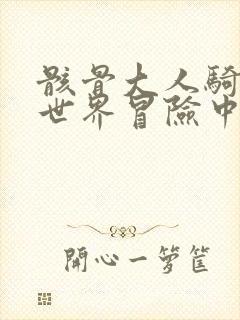 骸骨大人騎
世界冒險中
開心一籮筐